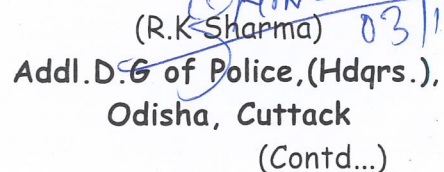 (R.K Sharma) 03/1
Addl.D.G of Police,(Hdqrs.),
Odisha, Cuttack
(Contd...)